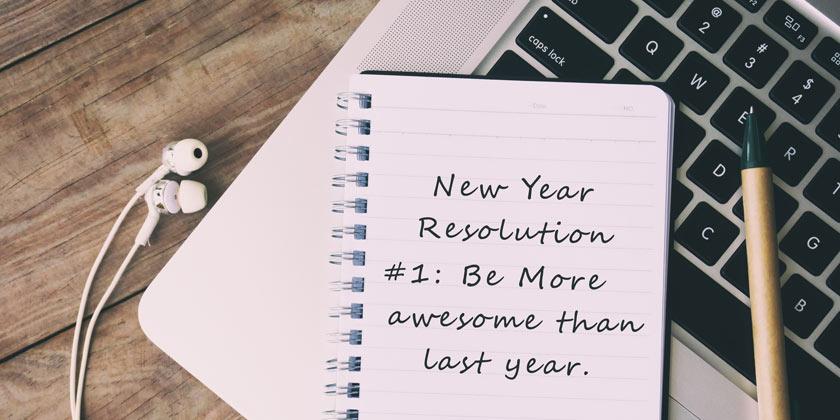 @
2
F3
#
3
$
4
Q
W
E
R
caps lock
C
G
B
Date
NO.
New Year
Resolution
#1: Be More
awesome than
last year.